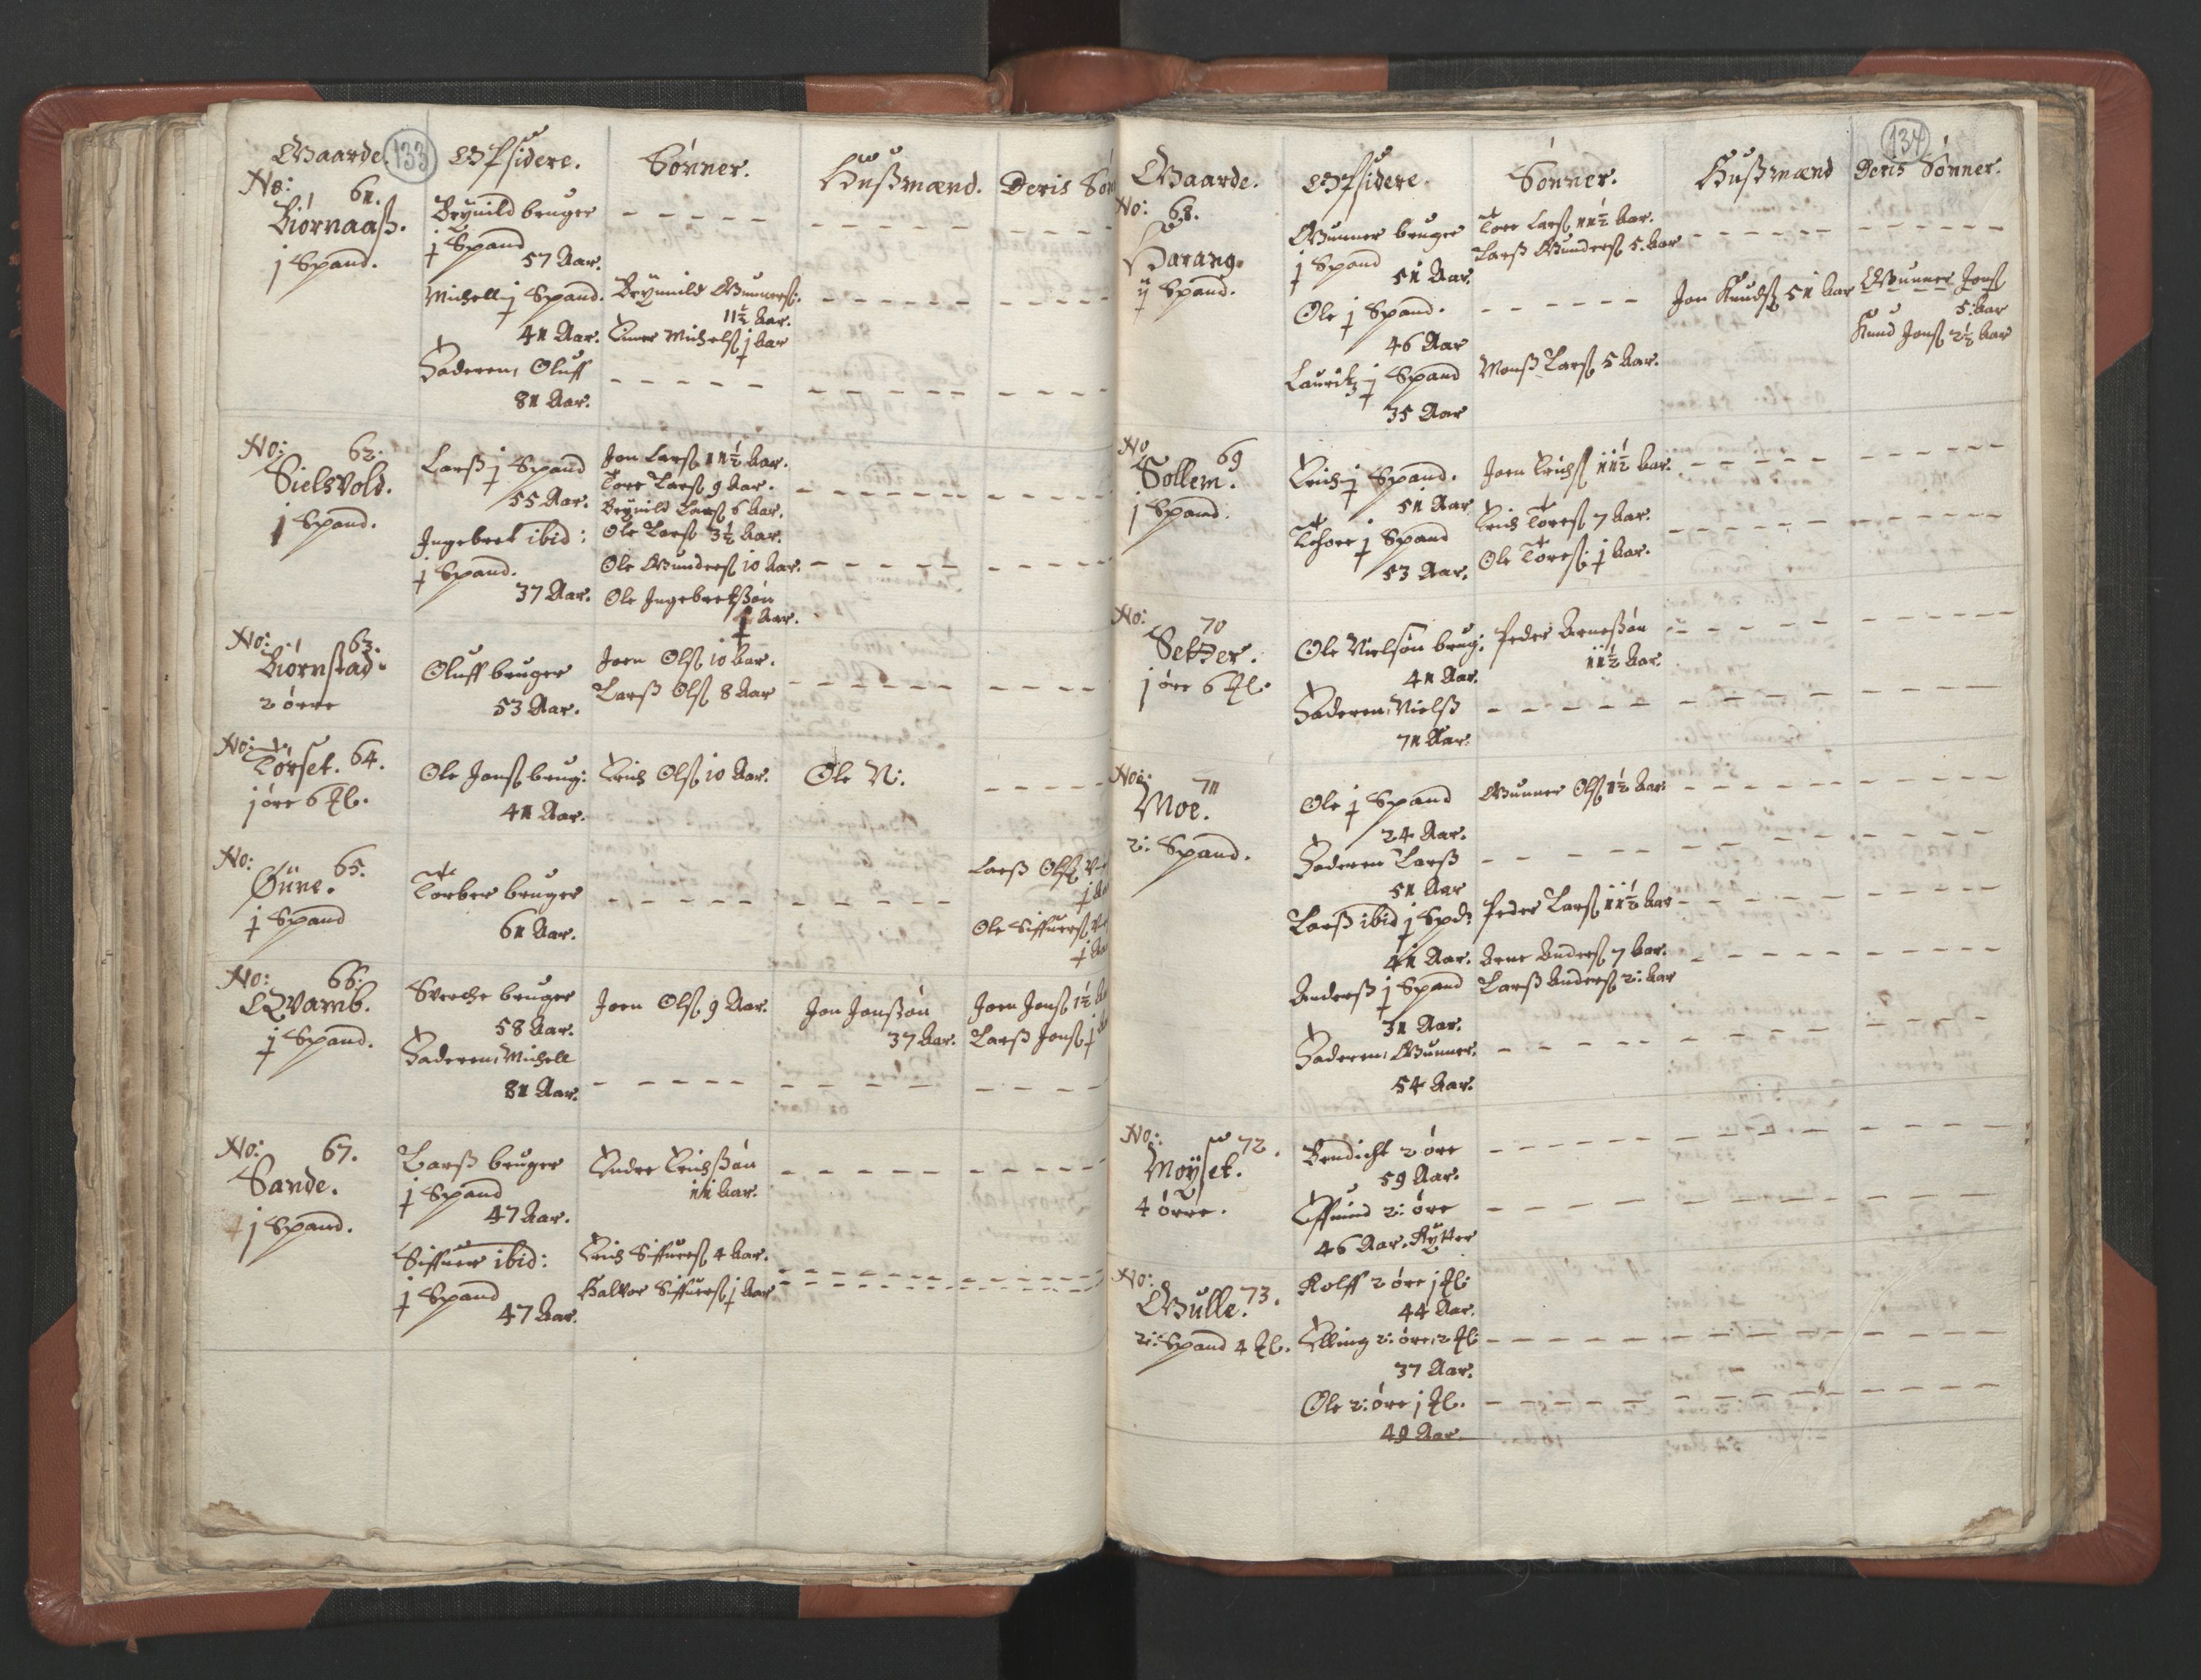 133
Gaarde. Opsidere. Sønner. Hußmænd. Deris Søn
No: 61.
Biørnaaß.
j Spand.
Brynild bruger
j Spand
57 Aar.
Michell j Spand.
41 Aar.
Faderen, Oluff
81 Aar.
Brynnild Gunnerß:
11½ Aar.
Einer Michelß j Aar
No: 62.
Sielsvold.
j Spand.
Larß j Spand
55 Aar.
Ingebret ibid:
j Spand.
37 Aar.
Jon Larß 11½ Aar.
Tore Larß 9 Aar.
Brynild Larß 6 Aar.
Ole Larß 3½ Aar.
Ole Gunderß 10 Aar.
Ole Ingebretßøn
j Aar.
No: 63.
Biørnstad
2 ørre
Oluff bruger
53 Aar.
Joen Olß 10 Aar.
Larß Olß 8 Aar
No: 64.
Tørset.
j øre 6 Ml.
Ole Jonß brug:
41 Aar.
Erich Olß 10 Aar.
Ole N:
No: 65.
Øüne.
j Spand
Torber bruger
61 Aar.
Larß Olß
j Aa
Ole Siffuerß
j Aa
No: 66:
Qvamb.
j Spand.
Sverche bruger
58 Aar.
Faderen, Michell
81 Aar.
Joen Olß 9 Aar.
Jon Jonßøn
37 Aar.
Joen Jonß 1½ A
Larß Jonß j A
No: 67.
Sande.
j Spand.
Larß bruger
j Spand
47 Aar.
Siffuer ibid:
j Spand
47 Aar.
Endre Erichßøn
11 Aar.
Erich Siffuerß 4 Aar.
Halvor Siffuerß j Aar
134
Gaarde. Opsidere. Sønner. Hußmænd Deris Sønner.
No: 68.
Harang.
ij Spand.
Gunner bruger
j Spand
51 Aar
Ole j Spand.
46 Aar
Lauritz j Spand
35 Aar
Tore Larß 11½ Aar.
Larß Gunderß 5. Aar
Monß Larß 5 Aar.
Jon Knudß 51 Aar
Gunner Jonß
5. Aar
Knud Jonß 2½ Aar
No 69
Sollem.
j Spand.
Erich j Spand.
51 Aar
Thore j Spand
53 Aar.
Joen Erichß 11½ Aar.
Erich Toreß 7 Aar.
Ole Toreß: j Aar.
No: 70
Setzer.
j øre 6 Ml.
Ole Nielsøn brug:
41 Aar.
Faderen, Nielß
71 Aar.
Peder Arneßøn
11½ Aar.
No: 71
Moe.
2: Spand.
Ole j Spand
24 Aar.
Faderen Larß
51 Aar
Larß ibid j Spd:
41 Aar.
Anderß j Spand
31 Aar.
Faderen, Gunner.
54 Aar.
Gunner Olß 1½ Aar
Peder Larß 11½ Aar
Arne Anderß 7 Aar.
Larß Anderß 2: Aar
No: 72.
Moÿset.
4 ørre.
Bendicht 2 øre
59 Aar.
Effuind 2: øre
46 Aar. Rytter
No: 73.
Gulle.
2: Spand 4 Ml.
Rolff 2 øre j Ml:
44 Aar.
Elling 2: øre, 2 Ml:
37 Aar.
Ole 2: øre j Ml.
49 Aar.